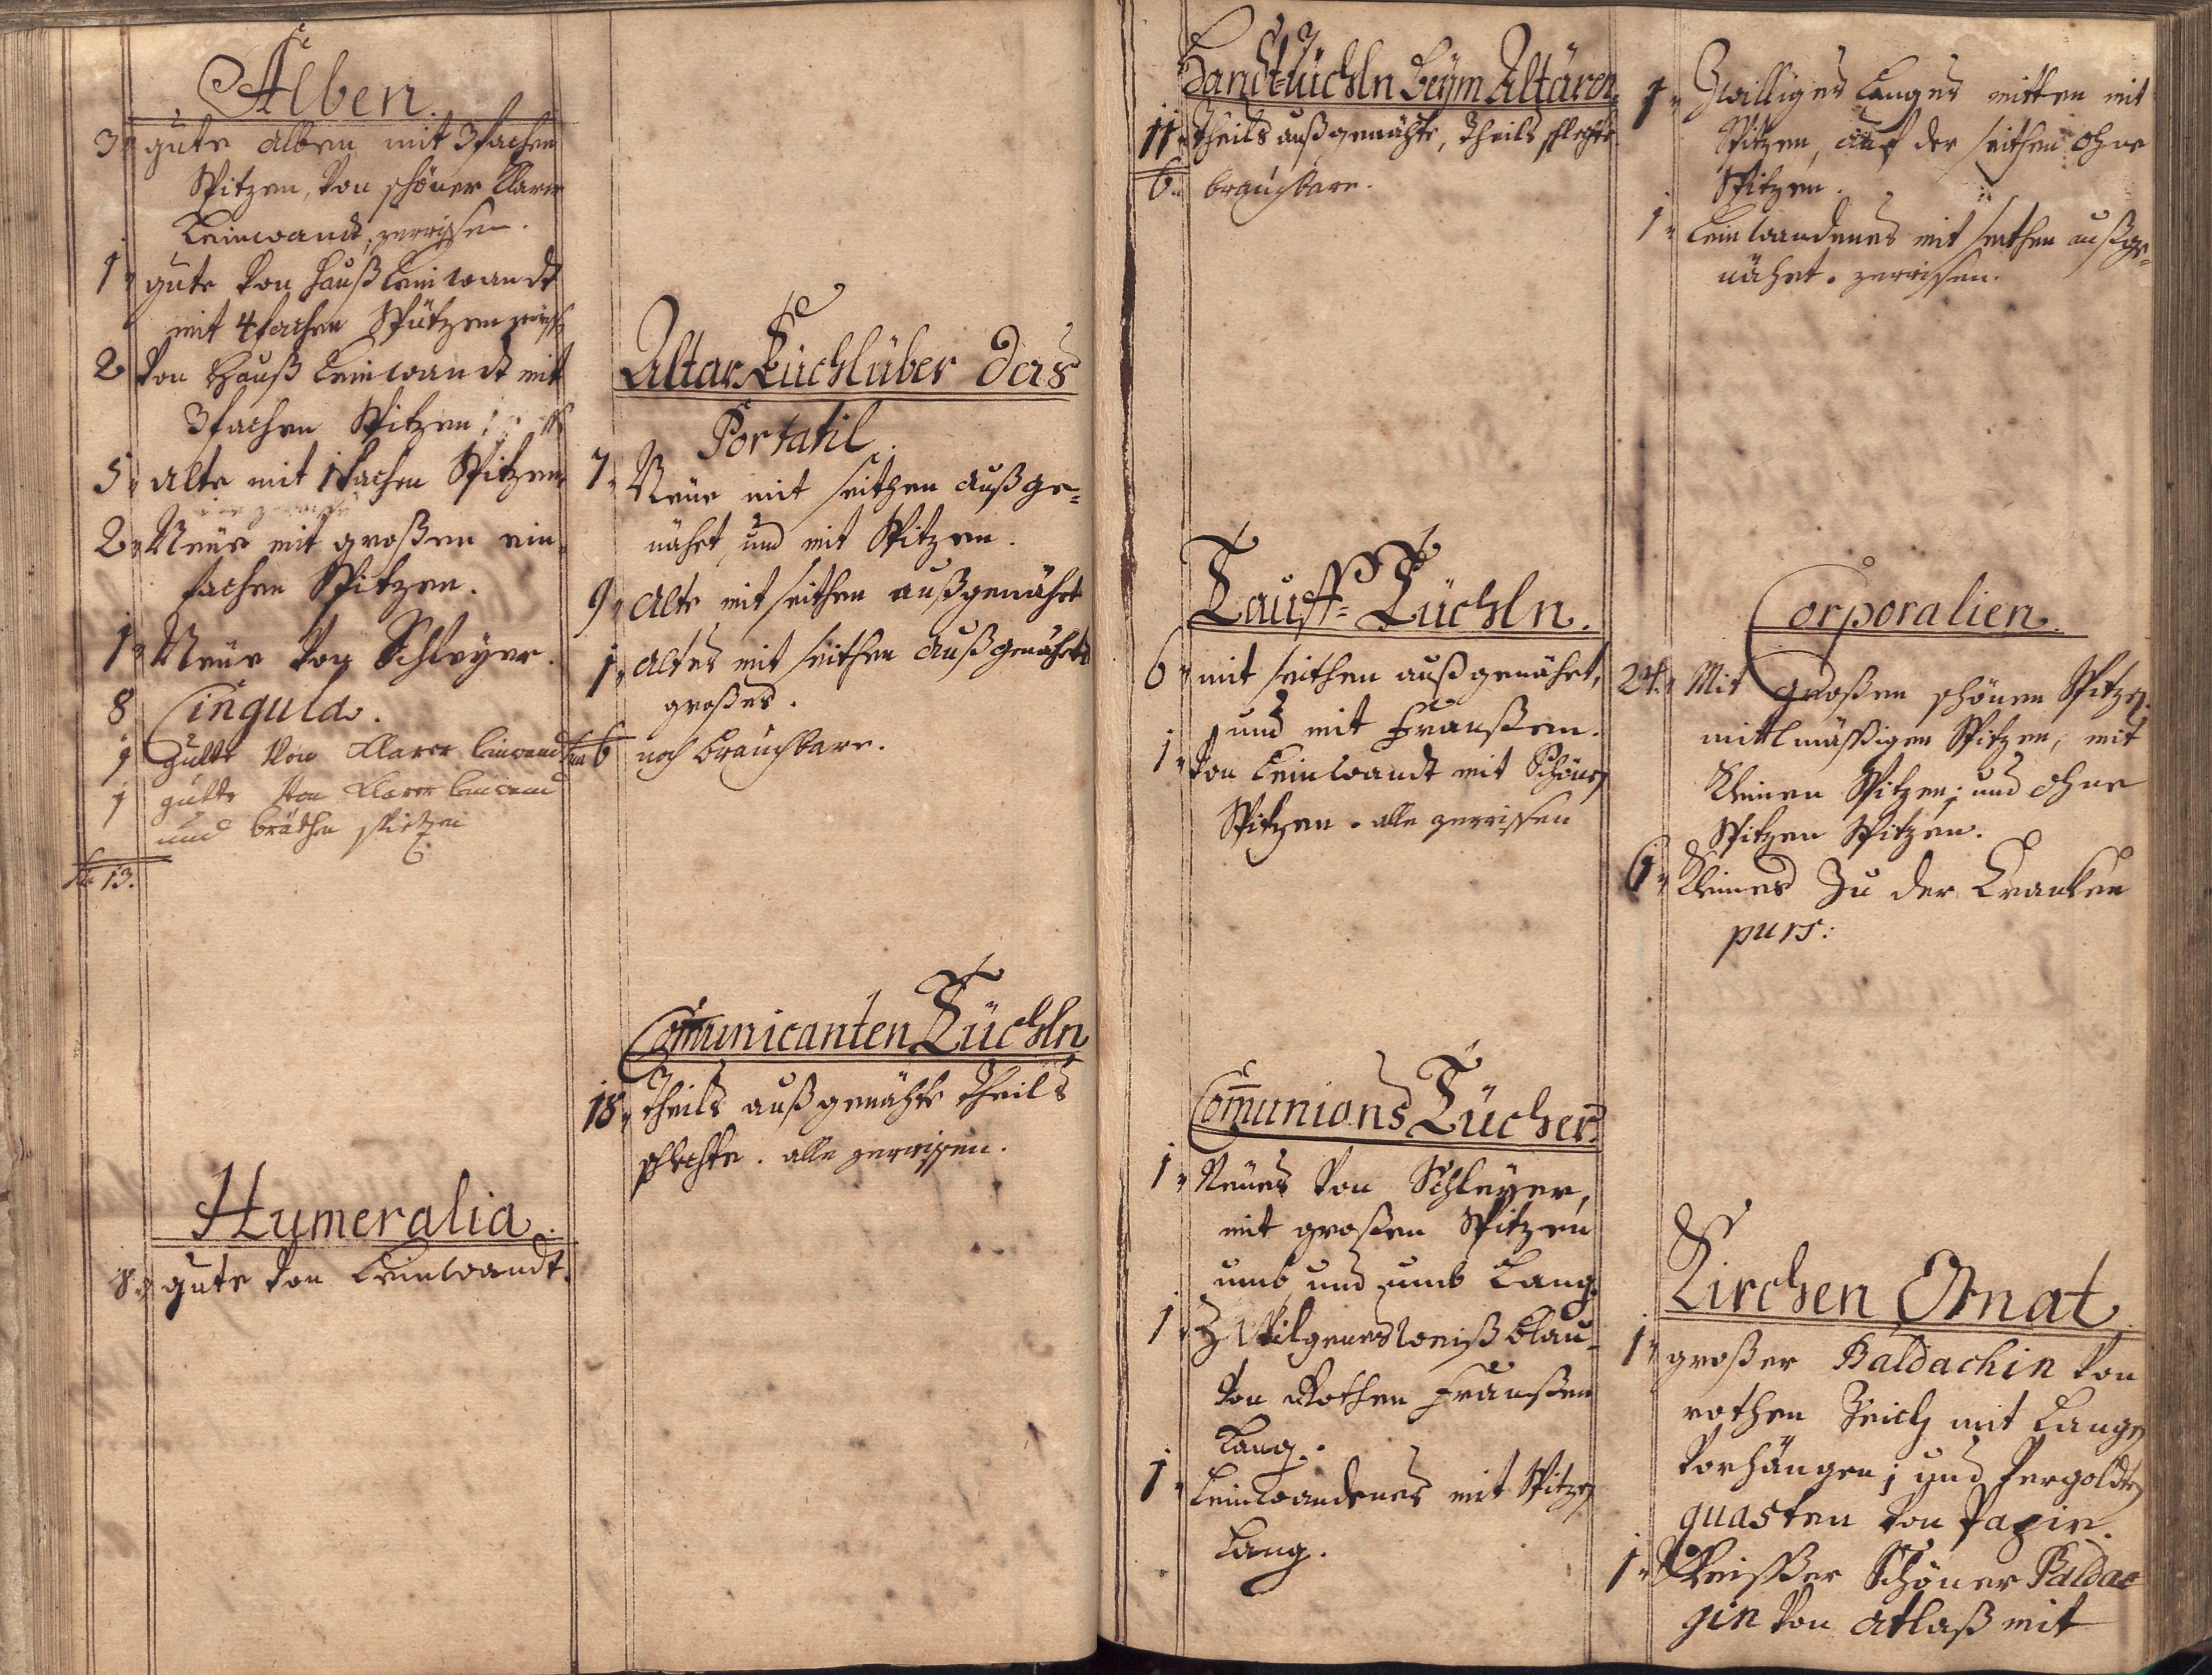 Alben.
3 gute Alben mit 3fachen
Spitzen, von schöner klarer
Leinwandt, zerrissen.
1 gute von Hauß Leinwandt
mit 4fachen Spützen
2 von Hauß Leinwandt mit
3fachen Spitzen,
5 alte mit 1fachen Spitzen
2 Neue mit großen ein-
fachen Spitzen.
1 Neue von Schleyer.
8 Cingula.
1 gutte von klarer leinwand
1 gutte von klarer leinwand
und bräthe spitzen
13.
Humeralia.
8 gute von Leinwandt.
Altar Tüchl über das
Portatil.
7 Neue mit seithen außge=
nähet, und mit Spitzen.
9 Alte mit seithen außgenähet
1 altes mit seithen außgenähets
großes.
6 noch brauchbare.
Communicanten Tüchln
18 theils außgenähte theils
schlechte. alle zerrissen.
Handt-tüchln beÿm Altären.
11 theils außgenähte, theils schlechte.
6. brauchbare.
Tauff=Tüchln.
6 mit seithen außgenähet,
und mit Franßen.
1 von Leinwandt mit Schönen
Spitzen. alle zerrissen
Com̅unions Tücher.
1 Neues von Schleÿer,
mit großen Spitzen
umb und umb Lang.
1 Zwilgenes weiß blau-
von Rothen Franßen
Lang.
1 Leinwandenes mit Spitzen
Lang.
1 Zwilliges Langes mitten mit
Spitzen, auf der seithen ohne
Spitzen.
1 Leinwandenes mit seithen außge=
nähet. zerrissen.
Corporalien.
24. Mit großen schönen Spitzen
mittlmäßigen Spitzen, mit
Kleinen Spitzen; und ohne
Spitzen Spitzen.
6 Kleines Zu der Krancken
purs:
Kirchen Ornat
1 großer Baldachin von
rothen Zeich mit Langen
Vorhängen; und vergoldten
quasten von Papir.
1 Weisser Schöner Baldac
gin von Atlaß mit